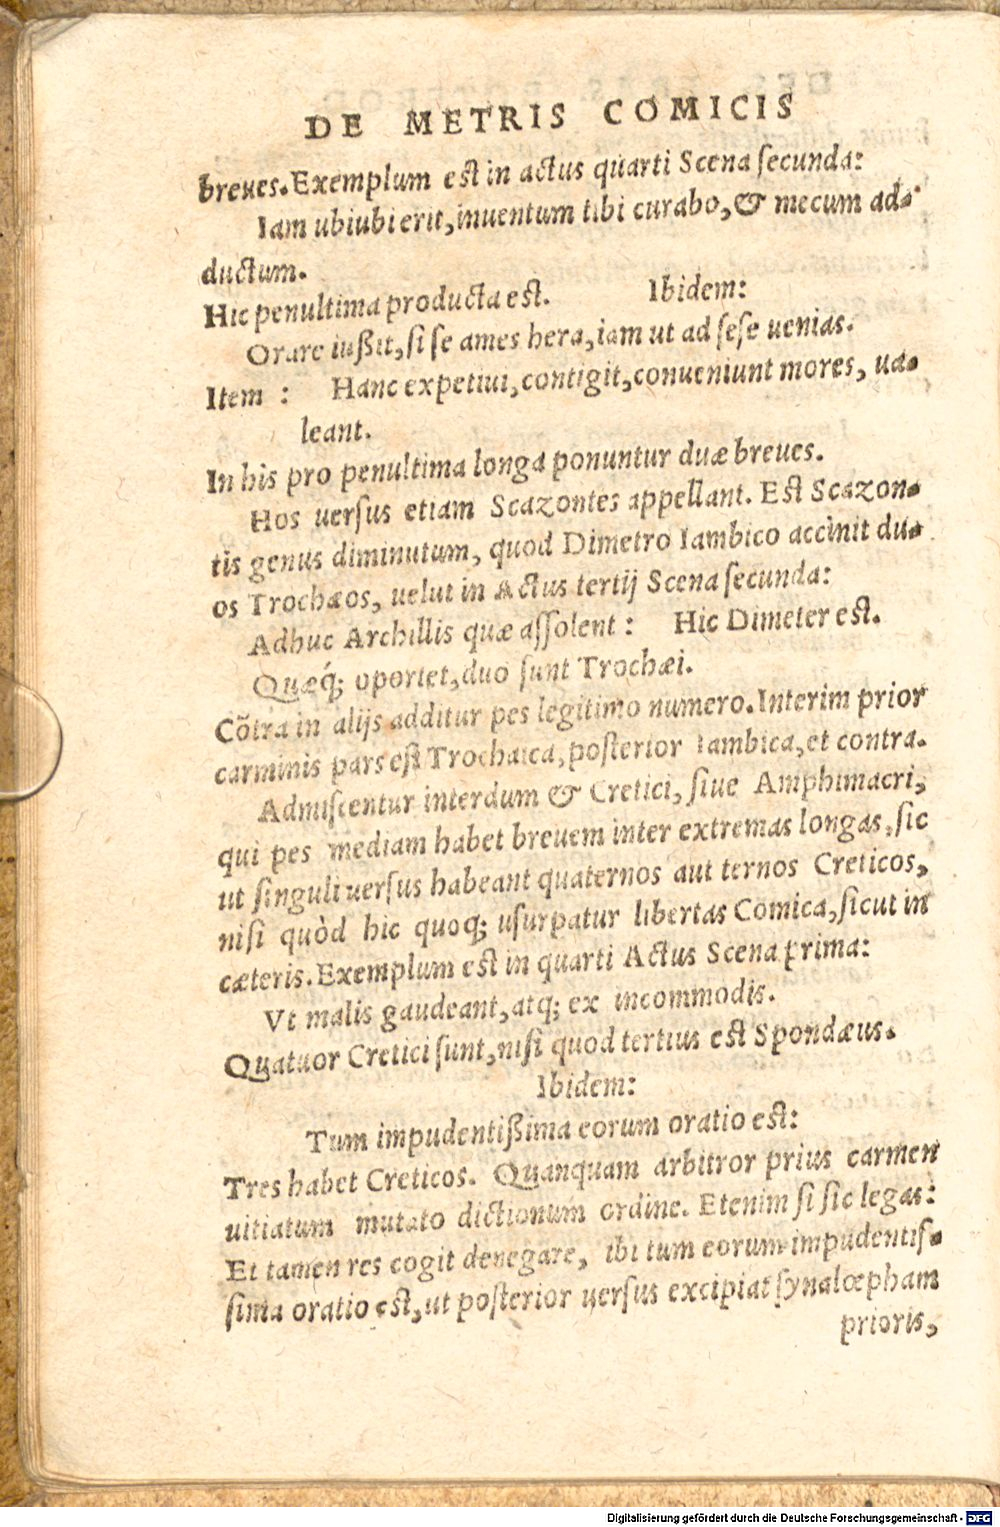 DE METRIS COMICIS
breues. Exemplum est in actus quarti Scena secunda:
Iam ubiubi erit, inuentum tibi curabo, & mecum ad-
ductum.
Hic penultima producta est. Ibidem:
Orare iußit, si se ames hera, iam ut ad sese uenias.
Item : Hanc expetiui, contigit, conueniunt mores, ua-
leant.
In his pro penultima longa ponuntur duæ breues.
Hos uersus etiam Scazontes appellant. Est Scazon-
tis genus diminutum, quod Dimetro Iambico accinit du-
os Trochæos, uelut in Actus tertij Scena secunda:
Adhuc Archillis quæ assolent : Hic Dimeter est.
Quæq́; oportet, duo sunt Trochæi.
Cõtra in alijs additur pes legitimo numero. Interim prior
carminis pars est Trochaica, posterior Iambica, et contra.
Admiscentur interdum & Cretici, siue Amphimacri,
qui pes mediam habet breuem inter extremas longas, sic
ut singuli uersus habeant quaternos aut ternos Creticos,
nisi quòd hic quoq; usurpatur libertas Comica, sicut in
cæteris. Exemplum est in quarti Actus Scena prima:
Vt malis gaudeant, atq; ex incommodis.
Quatuor Cretici sunt, nisi quod tertius est Spondæus.
Ibidem:
Tum impudentißima eorum oratio est:
Tres habet Creticos. Quanquam arbitror prius carmen
uitiatum mutato dictionum ordine. Etenim si sic legas:
Et tamen res cogit denegare, ibi tum eorum impudentis-
sima oratio est, ut posterior uersus excipiat synalœpham
prioris,
Digitalisierung gefördert durch die Deutsche Forschungsgemeinschaft - DFG